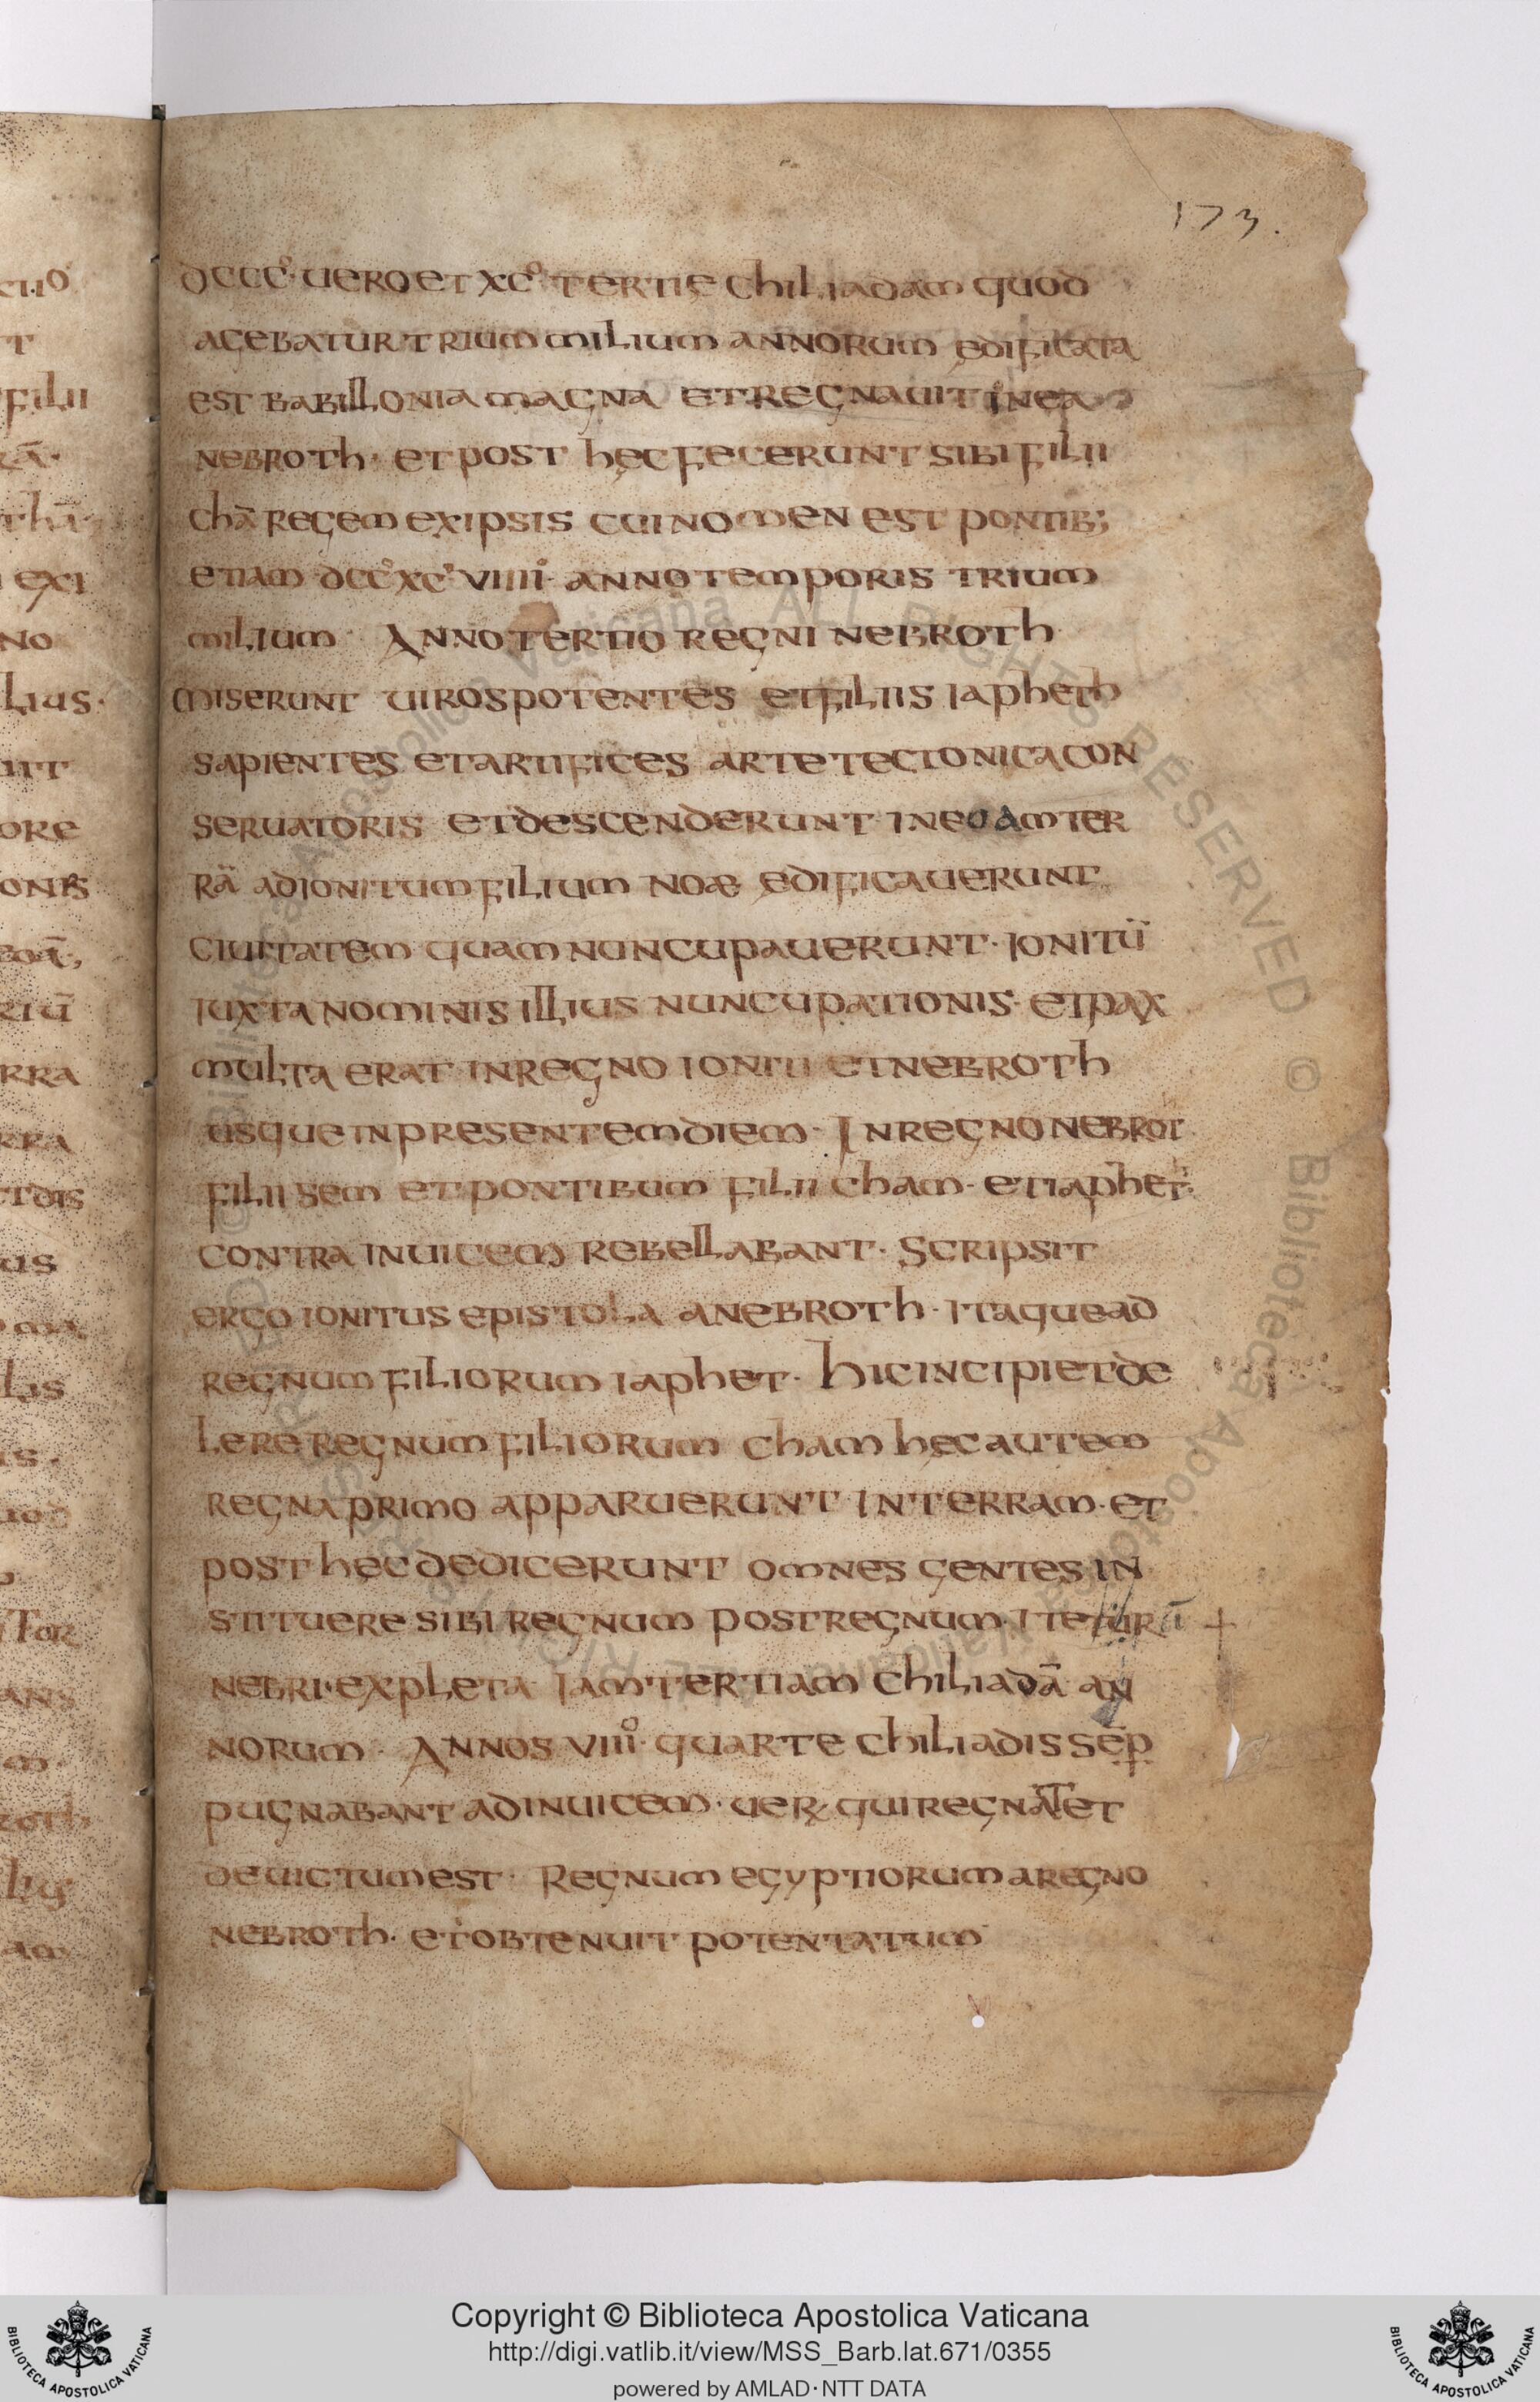 173.
dccc̊· uero et xc̊ tertię chiliadam quod
agebatur trium milium annorum ędificata
est babillonia magna et regnauit in ea
nebroth· et post hęc fecerunt sibi filii
chā regem ex ipsis cui nomen est pontib;
etiam dcc̊ xc̊ viiii· anno temporis trium
milium· Anno tertio regni nebroth
miserunt uiros potentes et filiis iapheth
sapientes et artifices arte tectonica con
seruatoris et descenderunt in eoam ter
rā ad ionitum filium noæ ędificauerunt
ciuitatem quam nuncupauerunt· ionitū
iuxta nominis illius nuncupationis· et pax
multa erat in regno ioniti et nebroth
usque in presentem diem· In regno nebrot
filii sem et pontibum filii cham· et iaphet·
contra inuicem rebellabant· Scripsit
ergo ionitus epistola a nebroth· itaque ad
regnum filiorum iaphet· hic incipiet de
lere regnum filiorum cham hęc autem
regna primo apparuerunt in terram· et
post hęc dedicerunt omnes gentes in
stituere sibi regnum post regnum· +
nebri· expleta iam tertiam chiliadā an
norum· Annos viiii̊· quarte chiliadis sēp
pugnabant ad inuicem· qui regnāt et
deuictum est· Regnum egyptiorum a regno
nebroth· et obtenuit potentatum
Copyright © Biblioteca Apostolica Vaticana
http://digi.vatlib.it/view/MSS_Barb.lat.671/0355
powered by AMLAD·NTT DATA